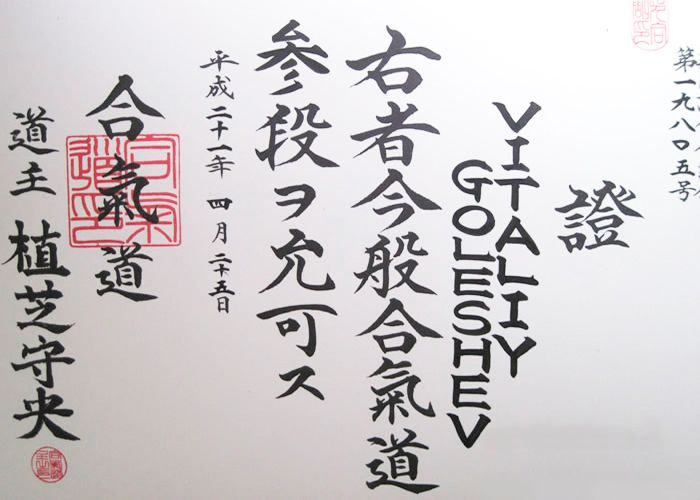 第一九八〇五号
證
VITALIY
GOLESHEV
右者今般合氣道
参段ヲ允可ス
平成二十一年 四月 二十五日
合氣道
道主 植芝守央